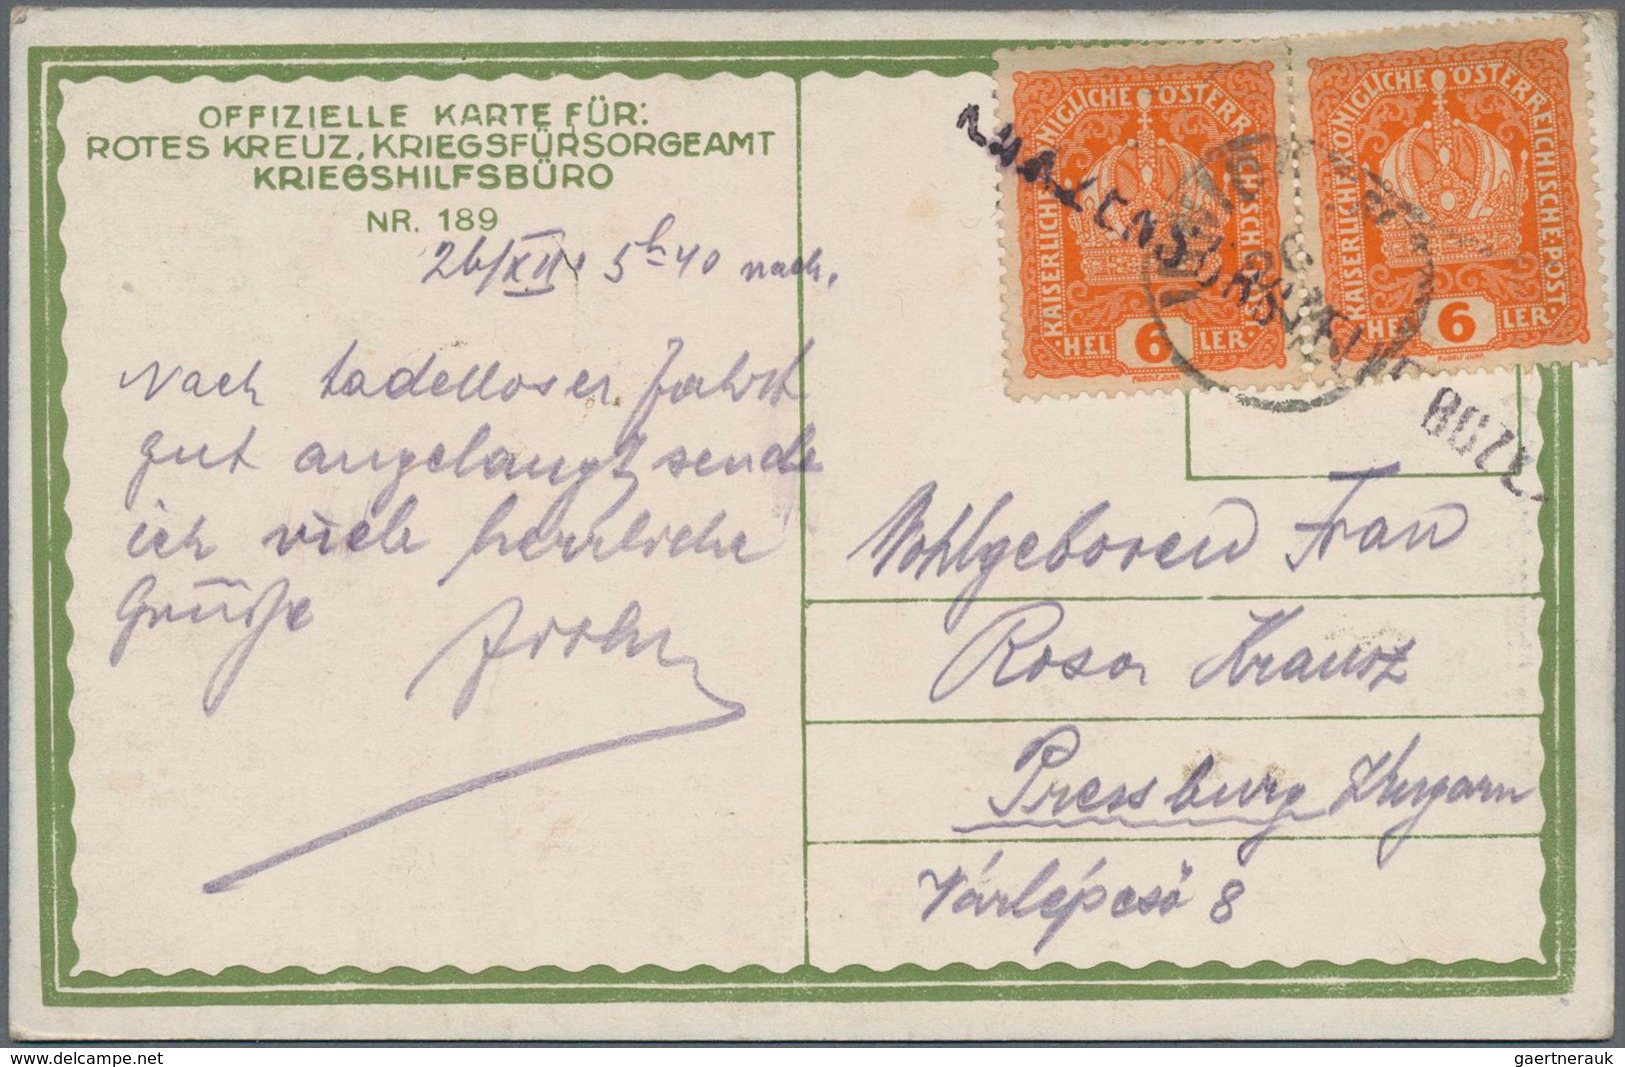 OFFIZIELLE KARTE FÜR:
ROTES KREUZ, KRIEGSFÜRSORGEAMT
KRIEGSHILFSBÜRO
NR. 189
26/XII. 5h 40 nach.
Nach tadelloser Fahrt
gut angelangt sende
ich viele herzliche
Grüße
KAISERLICHE KÖNIGLICHE ÖSTERREICHISCHE POST
HEL 6 LER
RUDOLF JUNK
KAISERLICHE KÖNIGLICHE ÖSTERREICHISCHE·POST·
HEL 6 LER
RUDOLF JUNK
26
Wohlgeboren Frau
Rosa Krausz
Pressburg Ungarn
Várlépcső 8
Visit delcampe.net
gaertnerauk